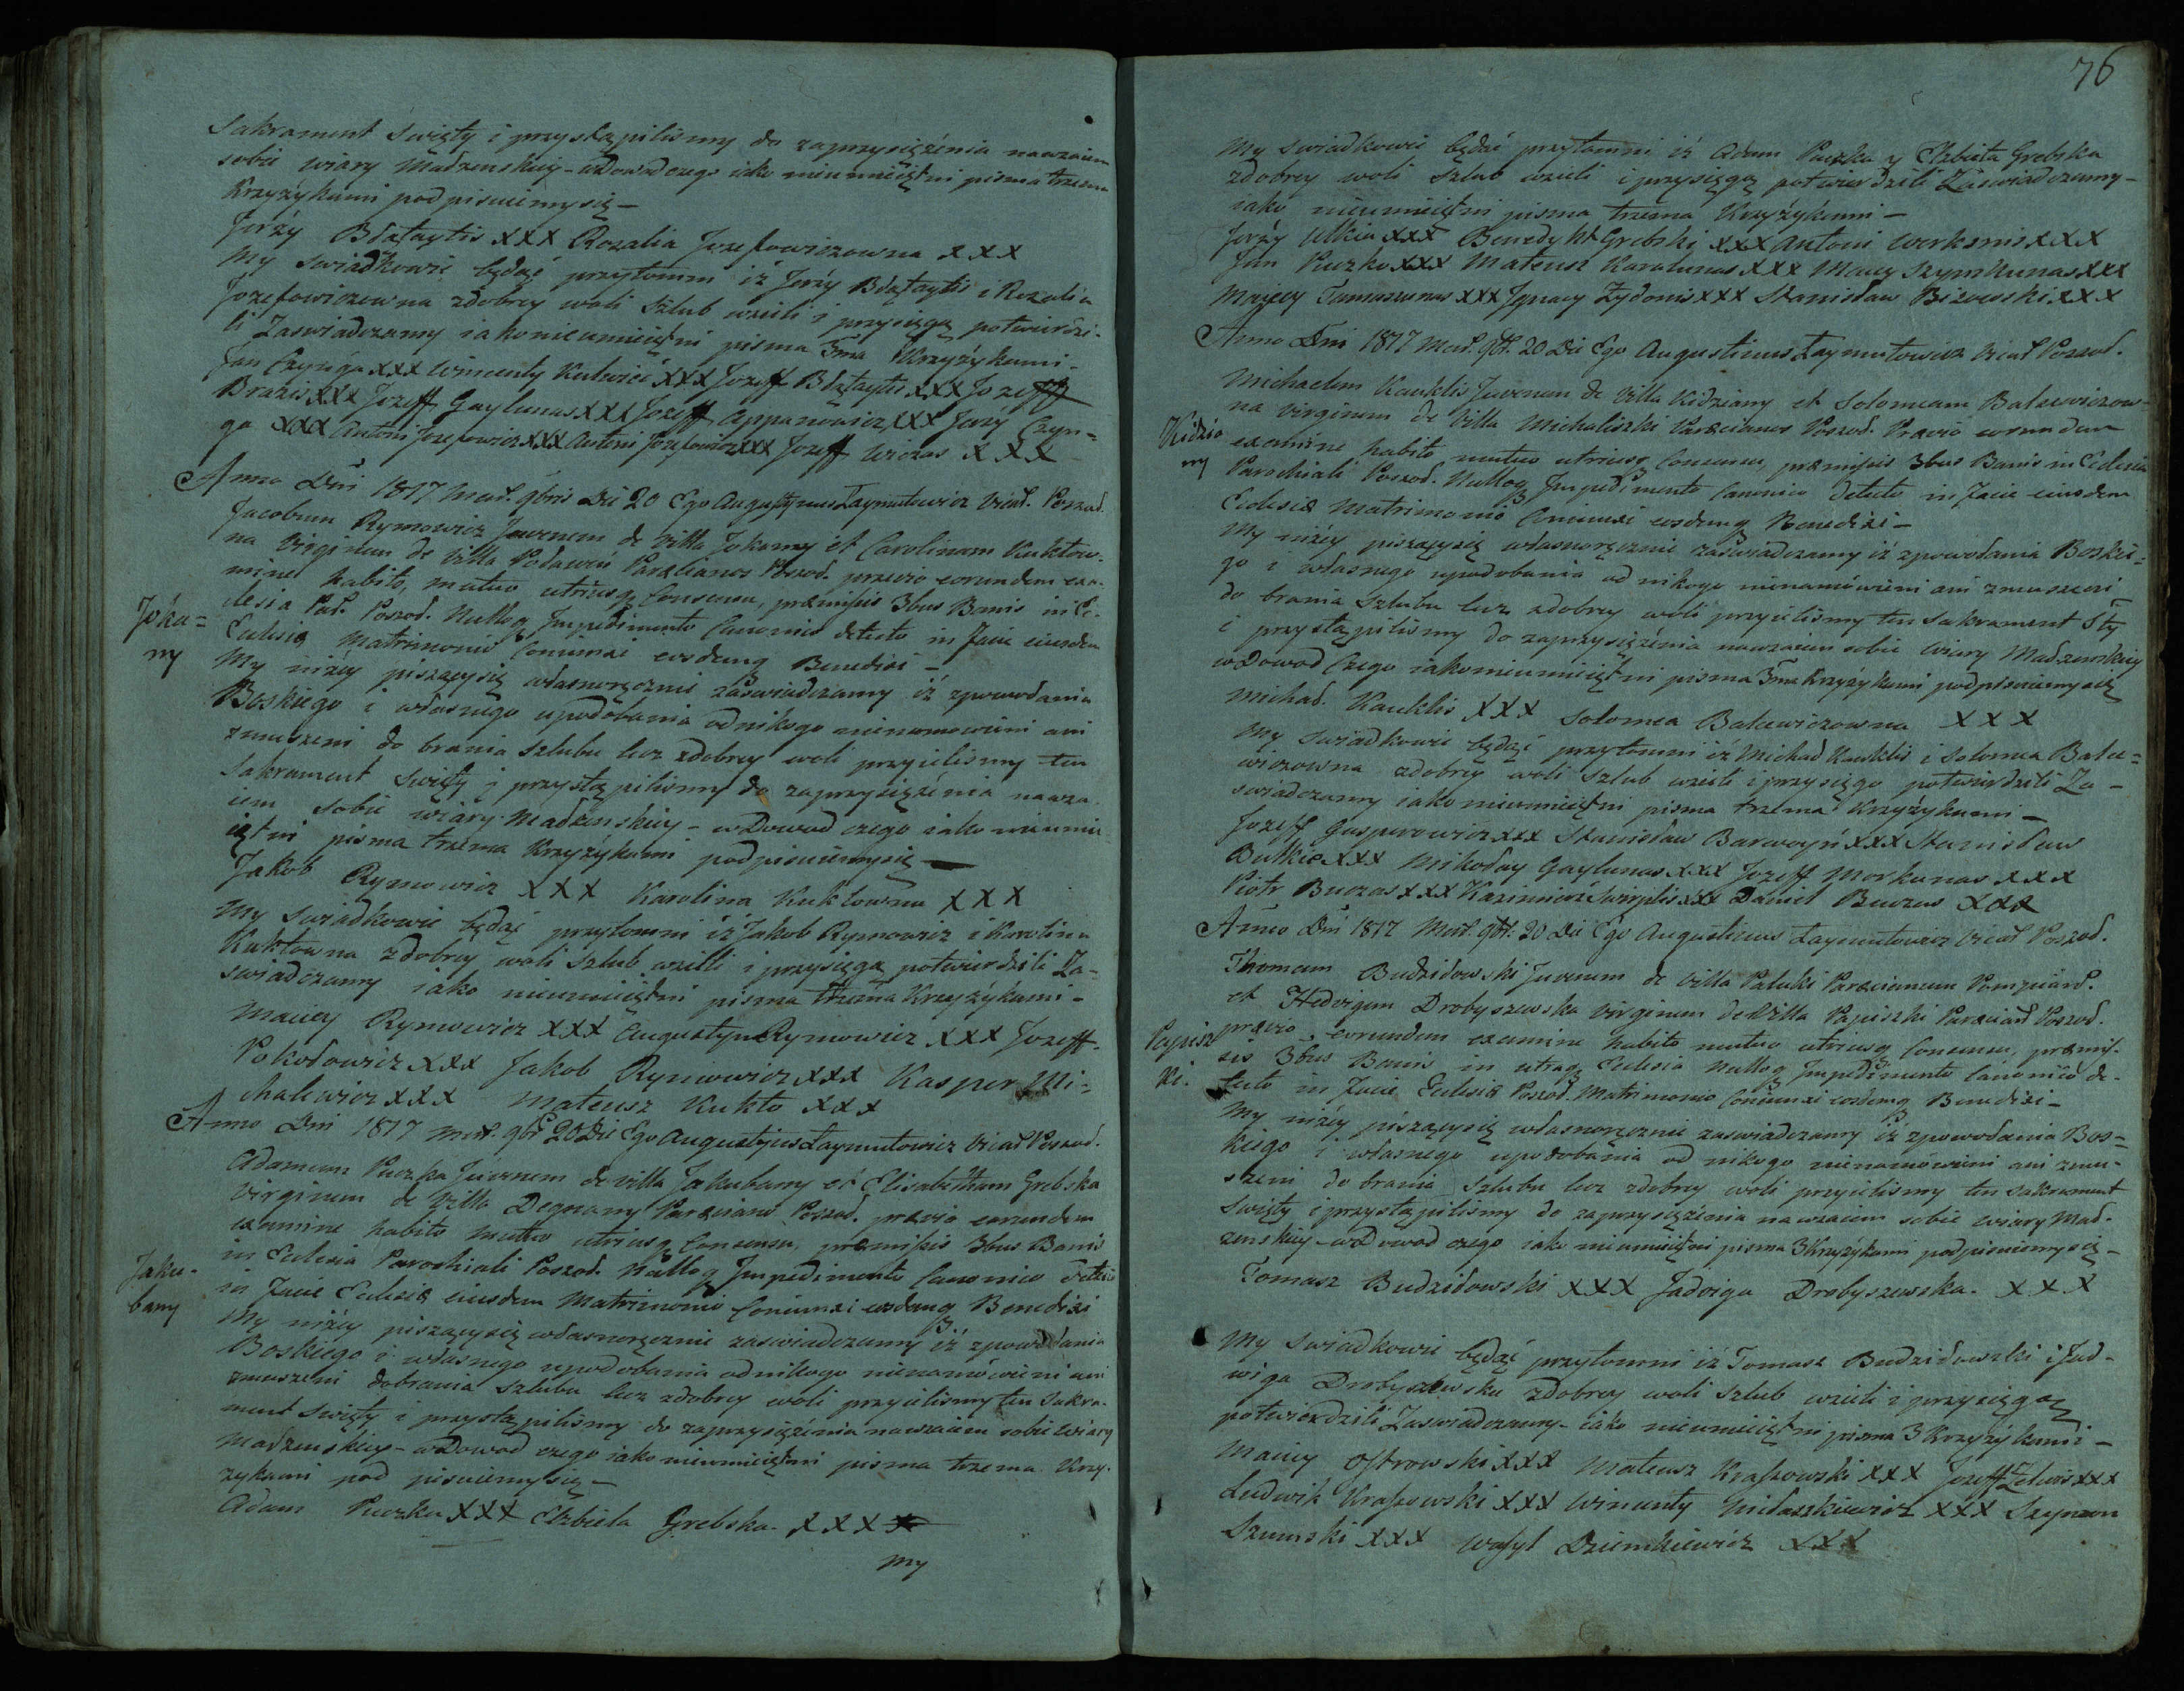 Sakrament Swięty i przystąpilismy do zaprzysiężenia nawzaiem
sobie wiary Madzenskiey - wDowod czego iako nieumieiętni pisma trzema
Krzyżykami podpisuiemysię -
Jerży XXX Rozalia Jozefowiczowna XXX
My swiadkowie będąć przytomni iż Jerży i Rozalia
Jozefowiczowna zdobrey woli Szlub wzieli i przysięgą potwierdzi-
li Zaswiadczamy iakonieumieiętni pisma 3ma Krzyżykami -
Jan Czyżega XXX Wincenty XXX Jozeff XXX Jozeff
Brazis XXX Jozeff Gaylunas XXX Jozeff XXX Jerży Czyn=
ga XXX Antoni Jozefowicz XXX Antoni Jozefowicz XXX Jozeff XXX
Anno Dni 1817 Mens. 9bris Die 20 Ego Augustynus Laymutowicz Vicar. Poszad.
Jacobum Rymowicz Juvenem de Villa Jokany et Carolinam Kuktow-
na Virginem de Villa Parœcianos Poszod. prævio eorundem exa-
mine habito, mutuo utriusq Consensu, præmissis 3bus Bannis in Ec-
clesia Par. Poszod. Nulloq Impedimento Canonico detecto in Facie eiusdem
Eclesiæ Matrimonio Coniunxi eosdemq Benedixi -
Joka=
ny
My niżey piszącysię własnoręcznie zaświadczamy iż zpowodania
Boskiego i własnego upodobania odnikogo nienamowieni ani
zmuszeni do brania Szlubu lecz zdobrey woli przyielismy ten
Sakrament Swięty i przystąpilismy do zaprzysiężenia nawza-
iem sobie wiary Madżenskiey - wDowod czego iako nieumie-
iętni pisma trzema Krzyżykami podpisuiemysię -
Jakob Rymowicz XXX Karolina Kuktowna XXX
My Swiadkowie będąć przytomni iż Jakob Rymowicz i Karolina
Kuktowna zdobrey woli Szlub wzieli i przysięgą potwierdzili Za-
swiadczamy iako nieumieiętni pisma trzema Krzyżykami -
Maciey Rymowicz XXX Augustyn Rymowicz XXX Jozeff
Pokołowicz XXX Jakob Rymowicz XXX Kasper Mi=
chalewicz XXX Mateusz Kukto XXX
Anno Dni 1817 Mens. 9br 20 Die Ego Augustynus Laymutowicz Vicar Poszod.
Adamum Puczka Juvenem de villa Jakubany et Elisabetham Grebska
Virginem de Villa Degnany Parœcianos Poszod. prævio eorundem
examine habito mutuo utriusq Consensu, præmissis 3bus Banis
in Eclesia Parochiali Poszod. Nulloq Impedimento Canonico detecto
in Facie Eclesiæ eiusdem Matrimonio Coniunxi eosdemq Benedixi
Jaku-
bany
My niżey piszącysię własnoręcznie zaswiadczamy iż zpowodania
Boskiego i własnego upodobania odnikogo nienamówieni ani
zmuszeni dobrania Szlubu lecz zdobrey woli przyielismy ten Sakra-
ment Swięty i przystąpiliśmy do zaprzysiężenia nawzaiem sobie wiary
Madzenskiey - wDowod czego iako nieumieiętni pisma trzema Krzy-
zykami pod pisuiemysię -
Adam Puczka XXX Elzbieta Grebska. XXX
My
76
My swiadkowie będąć przytomni iż Adam Puczka y Elzbieta Grebska
zdobrey woli Szlub wzieli i przysięgą potwierdzili Zaswiadczamy -
iako nieumieiętni pisma trzema Krzyżykami -
Jerży Utkin XXX Benedykt Grebski XXX Antoni XXX
Jan Puczko XXX Mateusz Karalunas XXX Maciey Szymkunas XXX
Maciey Tamaszunas XXX Jgnacy Zydonis XXX Stanisław XXX
Anno Dni 1817 Mens. 9br. 20 Die Ego Augustinus Laymutowicz Vicar Poszod.
Michaelem Kauklis Juvenem de Villa Kidziany et Solomeam Balcewiczow-
na Virginem de Villa Michaliszki Parœcianos Poszod. Prævio eorundem
examine habito mutuo utriusq Consensu, præmissis 3bus Banis in Eclesia
Parochiali Poszod. Nulloq Impedimento Canonico detecto in Facie eiusdem
Eclesiæ Matrimonio Coniunxi eosdemq Benedixi -
Kidzia
ny
My niżey piszącysię własnoręcznie zaswiadczamy iż zpowodania Boskie=
go i własnego upodobania od nikogo nienamówieni ani zmuszeni
do brania Szlubu lecz zdobrey woli przyielismy ten Sakrament Sty
i przystąpilismy do zaprzysiężenia nawzaiem sobie Wiary Madzenskiey
wDowod Czego iakonieumieiętni pisma 3ma Krzyżykami podpisuiemysię
Michał. Kauklis XXX Solomea Balcewiczowna XXX
My swiadkowie będąć przytomni iz Michał Kauklis i Solomea Balce=
wiczowna zdobrey woli Szlub wzieli i przysięgo potwierdzili Za-
swiadczamy iako nieumieiętni pisma trzema Krzyżykami -
Jozeff Gasperowicz XXX Stanisław XXX Stanisław
Butkis XXX Mikołay Gaylunas XXX Jozeff Morkunas XXX
Piotr Buczas XXX Kazimierz XXX Daniel XXX
Anno Dni 1817 Mens. 9br. 20 Die Ego Augustinus Laymutowicz Vicar Poszod.
Thomam Budzidowski Juvenem de Villa Paluki Parœcianum
et Hedvigem Drobyszewska Virginem de Villa Papiszki Parœcian Poszod.
prævio eorundem examine habito mutuo utriusq Consensu, præmis-
sis 3bus Banis in utraq Eclesia Nulloq Impedimento Canonico de-
tecto in Facie Eclesiæ Poszod. Matrimonio Coniunxi eosdemq Benedixi -
Papisz
ki.
My niżey piszącysię własnoręcznie zaswiadczamy iż zpowodania Bos=
kiego i własnego upodobania od nikogo nienamówieni ani zmu-
szeni do brania Szlubu lecz zdobrey woli przyielismy ten Sakrament
Swięty i przystąpilismy do zaprzysiężenia nawzaiem sobie wiary Mad-
zenskiey - wDowod czego iako nieumieiętni pisma 3 Krzyżykami podpisuiemysię -
Tomasz Budzidowski XXX Jadwiga Drobyszewska. XXX
My Swiadkowie będąć przytomni iż Tomasz Budzidowski i Jad-
wiga Drobyszewska zdobrey woli Szlub wzieli i przysięgą
potwierdzili Zaswiadczamy - iako nieumieiętni pisma 3 Krzyżykami -
Maciey Ostrowski XXX Mateusz Kraszowski XXX Jozeff XXX
Ludwik Kraszowski XXX Wincenty Miłaszkiewicz XXX Szymon
Szumski XXX Wasyl Dziemkiewicz XXX